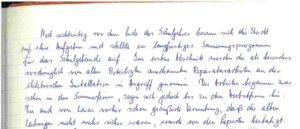 Noch rechtzeitig vor dem Ende des Schuljahres besann sich die Stadt
auf ihre Aufgaben und stellte ein langfristiges Sanierungsprogramm
für das Schulgebäude auf. Im ersten Abschnitt wurden die als besonders
vordringlich von allen Beteiligten anerkannten Reparaturarbeiten an der
elektrischen Installation in Angriff genommen. Die Arbeiten begannen zwar
schon in den Sommerferien, zogen sich jedoch bis zu den Herbstferien hin.
Die auch von Laien vorher schon geäußerte Vermutung, daß die alten
Leitungen nicht mehr sicher waren, wurde von den Experten bestätigt.